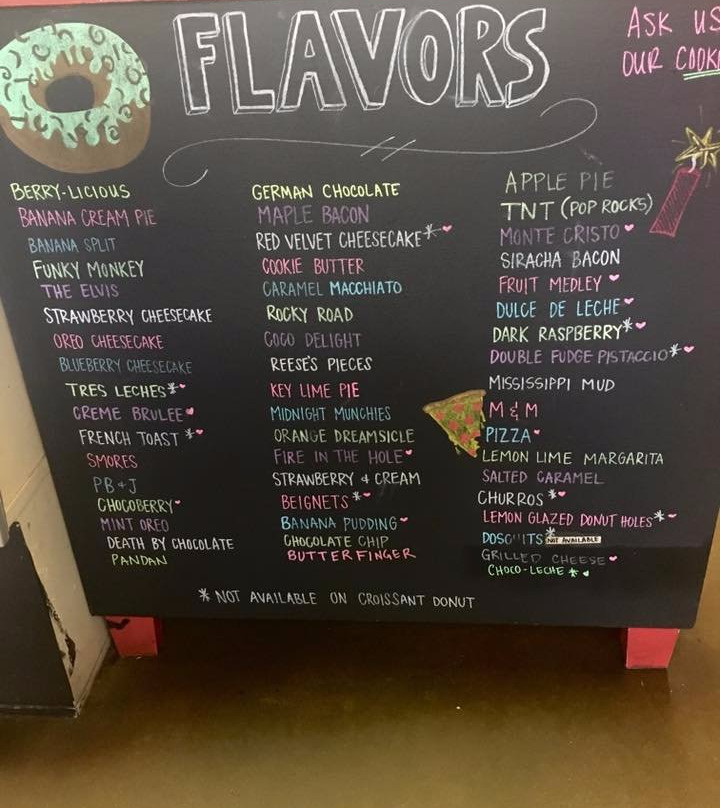 FLAVORS
ASK US
OUR COOK
BERRY-LICIOUS
BANANA CREAM PIE
BANANA SPLIT
FUNKY MONKEY
THE ELVIS
STRAWBERRY CHEESECAKE
OREO CHEESECAKE
BLUEBERRY CHEESECAKE
TRES LECHES*
CREME BRULEE
FRENCH TOAST *
SMORES
PB+J
CHOCOBERRY
MINT OREO
DEATH BY CHOCOLATE
PANDAN
GERMAN CHOCOLATE
MAPLE BACON
RED VELVET CHEESECAKE*
COOKIE BUTTER
CARAMEL MACCHIATO
ROCKY ROAD
COCO DELIGHT
REESE'S PIECES
KEY LIME PIE
MIDNIGHT MUNCHIES
ORANGE DREAMSICLE
FIRE IN THE HOLE
STRAWBERRY & CREAM
BEIGNETS*
BANANA PUDDING
CHOCOLATE CHIP
BUTTERFINGER
APPLE PIE
TNT (POP ROCKS)
MONTE CRISTO
SIRACHA BACON
FRUIT MEDLEY
DULCE DE LECHE
DARK RASPBERRY*
DOUBLE FUDGE PISTACCIO*
MISSISSIPPI MUD
M & M
PIZZA
LEMON LIME MARGARITA
SALTED CARAMEL
CHURROS*
LEMON GLAZED DONUT HOLES*
NOT AVAILABLE
GRILLED CHEESE
CHOCO-LECHE *
* NOT AVAILABLE ON CROISSANT DONUT